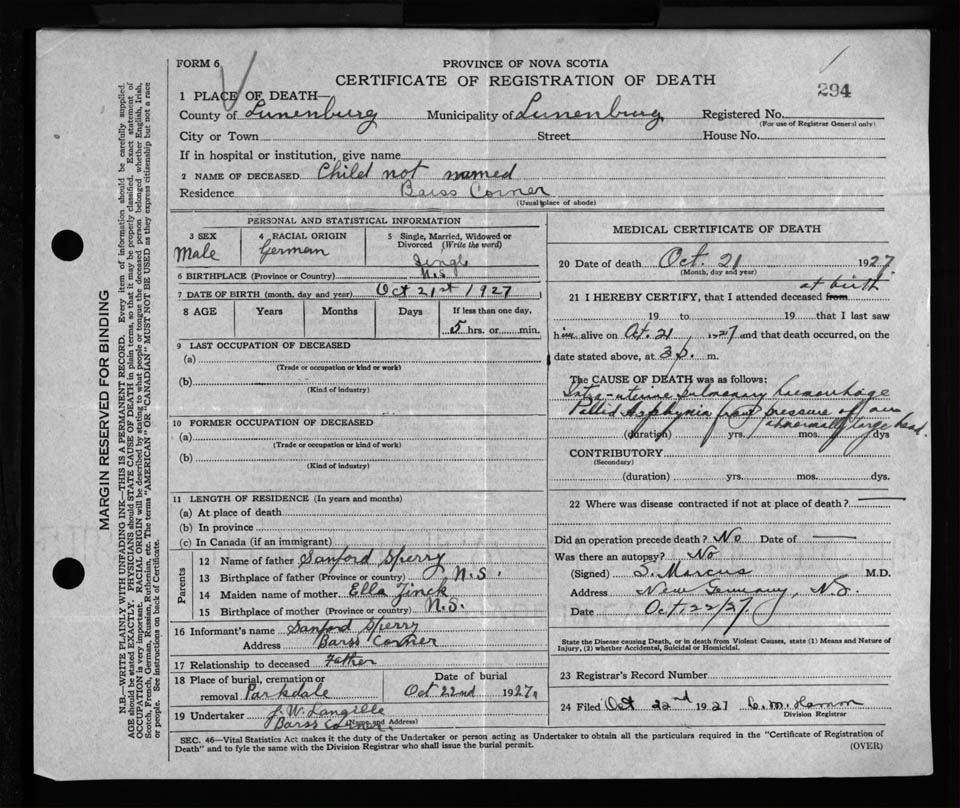 FORM 6
PROVINCE OF NOVA SCOTIA
CERTIFICATE OF REGISTRATION OF DEATH
294
1 PLACE OF DEATH—
County of Lunenburg Municipality of Lunenburg Registered No.
(For use of Registrar General only)
City or Town Street House No.
If in hospital or institution, give name
2 NAME OF DECEASED Child not named
Residence Barss Corner
(Usual place of abode)
PERSONAL AND STATISTICAL INFORMATION
3 SEX 4 RACIAL ORIGIN 5 Single, Married, Widowed or Divorced (Write the word)
Male German Single
6 BIRTHPLACE (Province or Country) N.S.
7 DATE OF BIRTH (month, day and year) Oct 21st 1927
8 AGE Years Months Days If less than one day,
5 hrs. or min.
9 LAST OCCUPATION OF DECEASED
(a)
(Trade or occupation or kind or work)
(b)
(Kind of industry)
10 FORMER OCCUPATION OF DECEASED
(a)
(Trade or occupation or kind of work)
(b)
(Kind of industry)
11 LENGTH OF RESIDENCE (In years and months)
(a) At place of death
(b) In province
(c) In Canada (if an immigrant)
Parents
12 Name of father Sanford Sperry
13 Birthplace of father (Province or country) N.S.
14 Maiden name of mother Ella Zinck
15 Birthplace of mother (Province or country) N.S.
16 Informant's name Sanford Sperry
Address Barss Corner
17 Relationship to deceased Father
18 Place of burial, cremation or Date of burial
removal Parkdale Oct 22nd 1927
19 Undertaker J. W. Langille
Barss Corner (Name and Address)
MEDICAL CERTIFICATE OF DEATH
20 Date of death Oct. 21 1927.
(Month, day and year)
at birth
21 I HEREBY CERTIFY, that I attended deceased from
19 to 19 that I last saw
him alive on Oct. 21 1927 and that death occurred, on the
date stated above, at 3 p. m.
The CAUSE OF DEATH was as follows:
Intra-uterine pulmonary hemorrhage
Pallid Asphyxia from pressure of an
abnormally large head.
(duration) yrs. mos. dys
CONTRIBUTORY
(Secondary)
(duration) yrs. mos. dys.
22 Where was disease contracted if not at place of death? —
Did an operation precede death? No Date of —
Was there an autopsy? No
(Signed) S. Marcus M.D.
Address New Germany, N.S.
Date Oct. 22/27.
State the Disease causing Death, or in death from Violent Causes, state (1) Means and Nature of
Injury, (2) whether Accidental, Suicidal or Homicidal.
23 Registrar's Record Number
24 Filed Oct 22nd 1927 C. M.
Division Registrar
SEC. 46—Vital Statistics Act makes it the duty of the Undertaker or person acting as Undertaker to obtain all the particulars required in the "Certificate of Registration of
Death" and to fyle the same with the Division Registrar who shall issue the burial permit.
(OVER)
MARGIN RESERVED FOR BINDING
N.B.—WRITE PLAINLY WITH UNFADING INK—THIS IS A PERMANENT RECORD. Every item of information should be carefully supplied.
AGE should be stated EXACTLY. PHYSICIANS should STATE CAUSE OF DEATH in plain terms, so that it may be properly classified. Exact statement of
OCCUPATION is very important. RACIAL ORIGIN will be described by stating to what people or tongue the deceased person belonged whether English, Irish,
Scotch, French, German, Russian, Ruthenian, etc. The terms "AMERICAN" or "CANADIAN" MUST NOT BE USED as they express citizenship but not a race
or people. See instructions on back of Certificate.